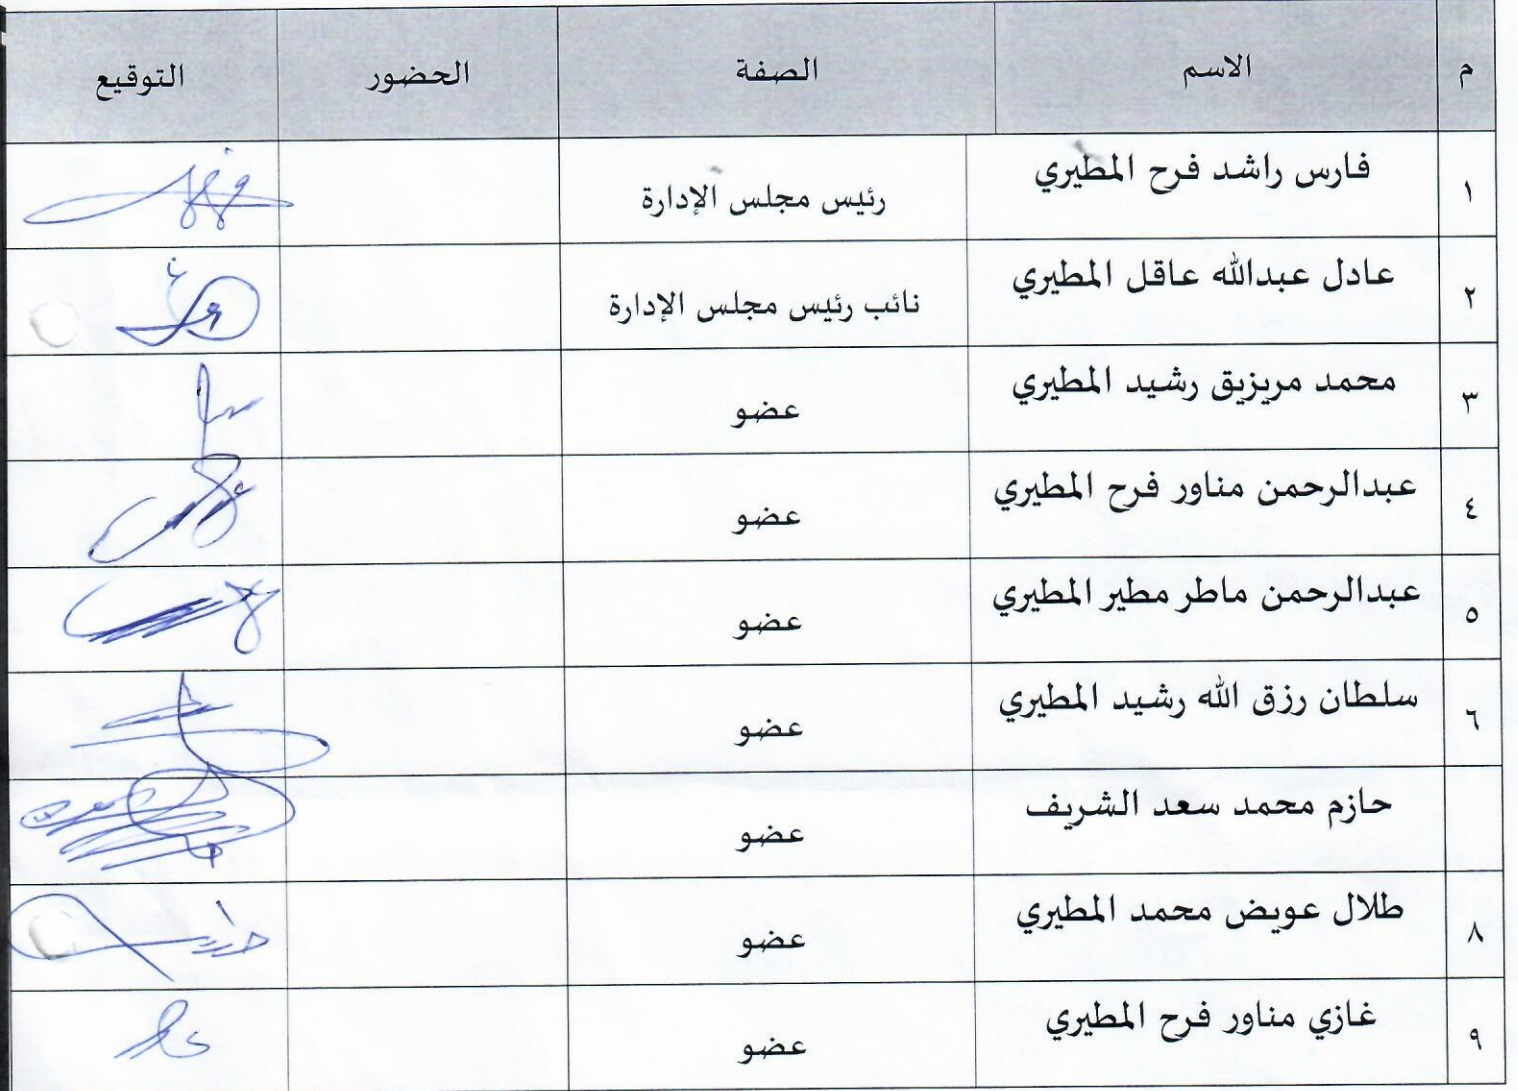 م الاسم الصفة الحضور التوقيع
١ فارس راشد فرح المطيري رئيس مجلس الإدارة
٢ عادل عبدالله عاقل المطيري نائب رئيس مجلس الإدارة
٣ محمد مريزيق رشيد المطيري عضو
٤ عبدالرحمن مناور فرح المطيري عضو
٥ عبدالرحمن ماطر مطير المطيري عضو
٦ سلطان رزق الله رشيد المطيري عضو
حازم محمد سعد الشريف عضو
٨ طلال عويض محمد المطيري عضو
٩ غازي مناور فرح المطيري عضو